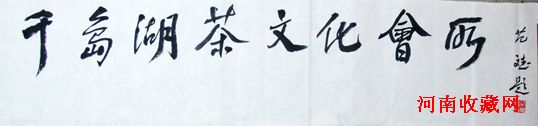 千島湖茶文化會所
范曾題
河南收藏网